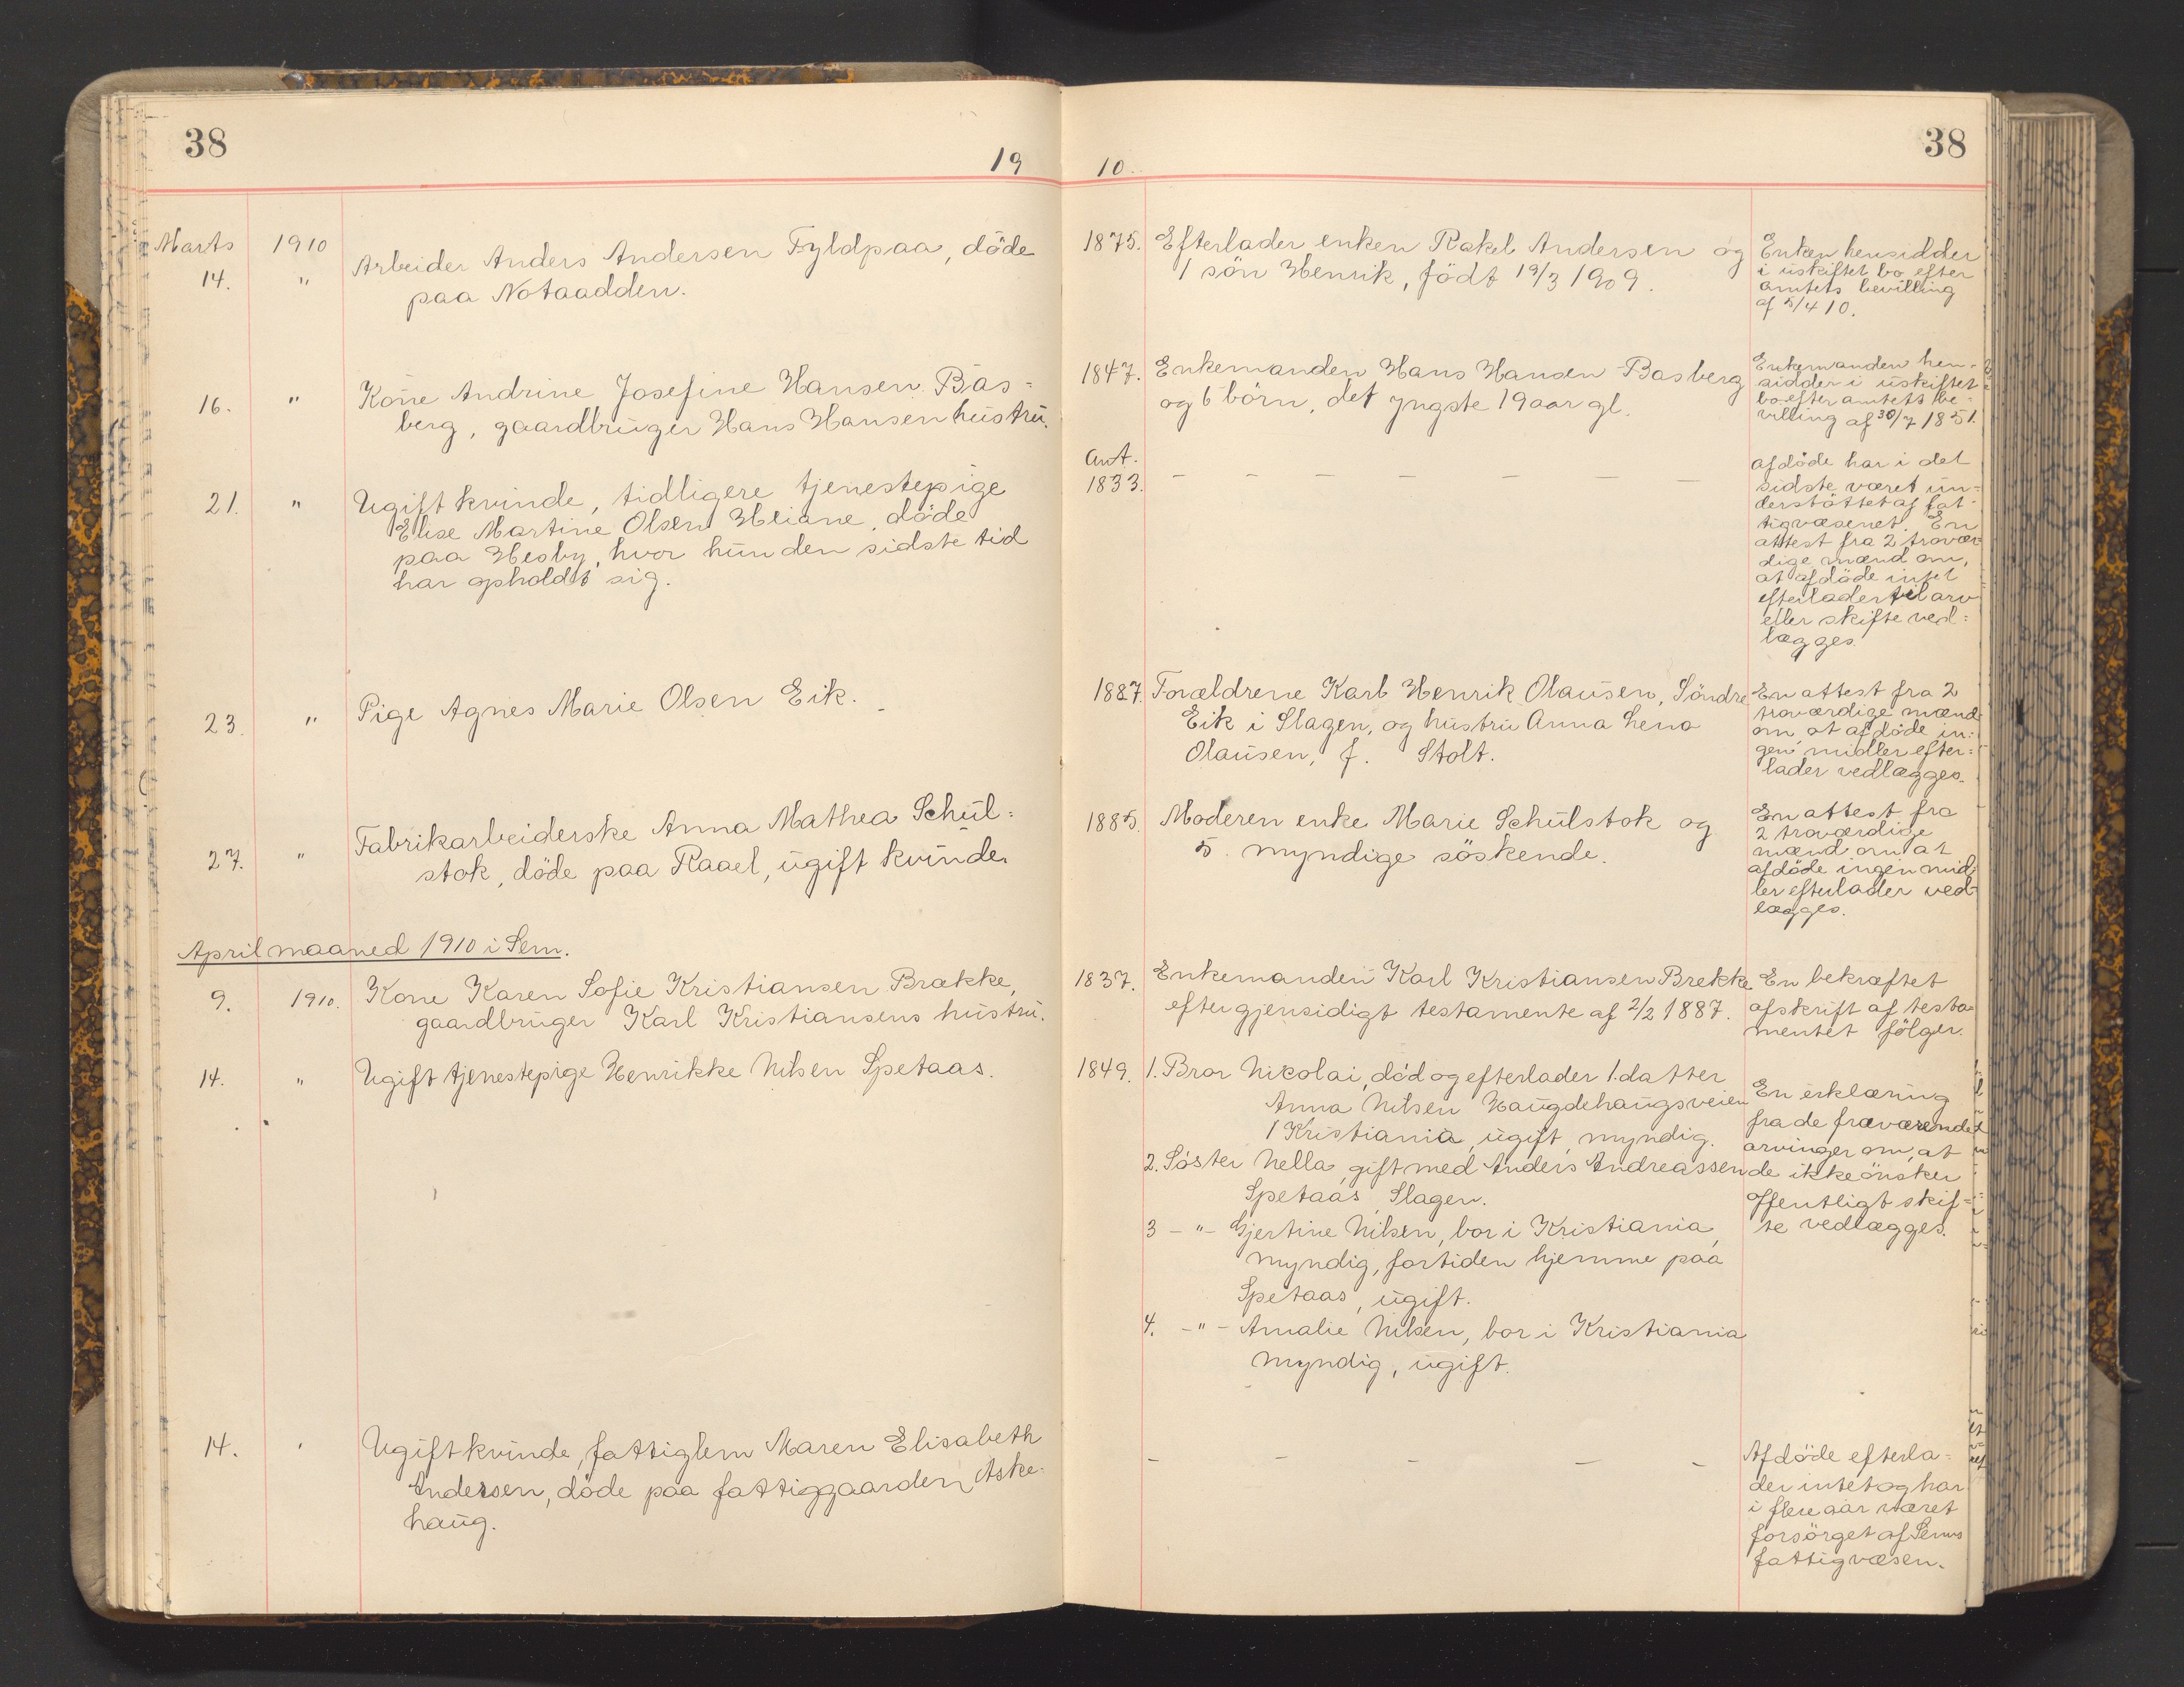 38
19
10.
38
Marts 1910
14. " Arbeider Anders Andersen Fyldpaa, döde
paa Notaadden.
1875. Efterlader enken Rakel Andersen og
1 sön Henrik, födt 19/3 1909.
Enken hensidder
i uskiftet bo efter
amtets bevilling
af 5/4 10.
16. " Kone Andrine Josefine Hansen Bas=
berg, gaardbruger Hans Hansen hustru.
1847. Enkemanden Hans Hansen Basberg
og 6 börn, det yngste 19 aar gl.
Enkemanden hen=
sidder i uskiftet
bo efter amtets be=
villing af 30/7 1851.
21. " Ugift kvinde, tidligere tjenestepige
Elise Martine Olsen Heiane, döde
paa Hesby, hvor hun den sidste tid
har opholdt sig.
Ant.
1833. - - - - - - -
afdöde har i det
sidste været un=
derstöttet af fat=
tigvæsenet. En
attest fra 2 trovær=
dige mænd om,
at afdöde intet
efterlader til arv
eller skifte ved=
lægges.
23. " Pige Agnes Marie Olsen Eik.
1887. Forældrene Karl Henrik Olausen, Söndre
Eik i Slagen, og hustru Anna Lena
Olausen, f. Stolt.
En attest fra 2
troværdige mænd
om, at afdöde in=
gen midler efter=
lader vedlægges.
27. " Fabrikarbeiderske Anna Mathea Schul=
stok, döde paa Raael, ugift kvinde.
1885. Moderen enke Marie Schulstok og
5 myndige söskende.
En attest fra
2 troværdige
mænd om at
afdöde ingen mid=
ler efterlader ved=
lægges.
April maaned 1910 i Sem.
9. 1910. Kone Karen Sofie Kristiansen Brække,
gaardbruger Karl Kristiansens hustru.
1837. Enkemanden Karl Kristiansen Brekke
efter gjensidigt testamente af 2/2 1887.
En bekræftet
afskrift af testa=
mentet fölger.
14. " Ugift tjenestepige Henrikke Nilsen Spetaas.
1849. 1. Bror Nikolai, död og efterlader 1 datter
Anna Nilsen Haugdehaugsveien
1 Kristiania, ugift, myndig.
2. Söster Nella, gift med Anders Andreassen
Spetaas, Slagen.
3 -"- Gjertine Nilsen, bor i Kristiania,
myndig, fortiden hjemme paa
Spetaas, ugift.
4. -"- Amalie Nilsen, bor i Kristiania
myndig, ugift.
En erklæring
fra de fraværende
arvinger om, at
de ikke önsker
offentligt skif=
te vedlægges.
14. Ugift kvinde, fattiglem Maren Elisabeth
Andersen, döde paa fattiggaarden Aske=
haug.
- - - - -
Afdöde efterla=
der intet og har
i flere aar været
forsörget af Sems
fattigvæsen.